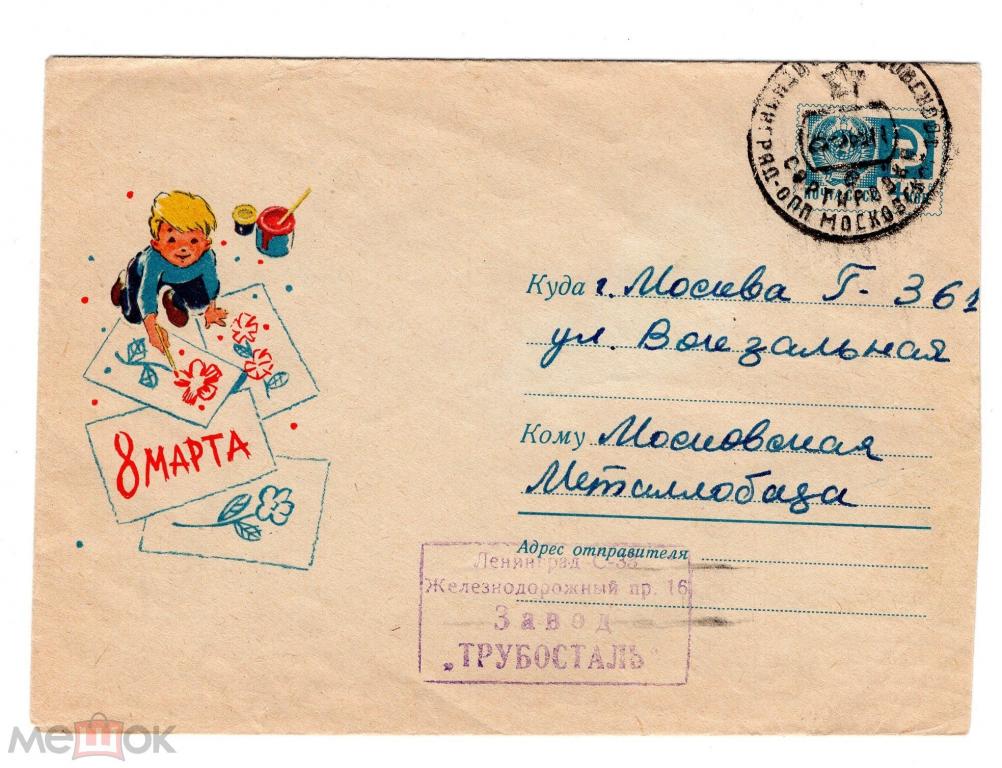 МОСКОВСК
СОРТИРОВКА
ПОЧТА СССР
8 МАРТА
Куда г. Москва Г-361
ул. Вокзальная
Кому Московская
Металлобаза
Адрес отправителя
Ленинград С-35
Железнодорожный пр. 16
Завод
„ТРУБОСТАЛЬ"
мешок